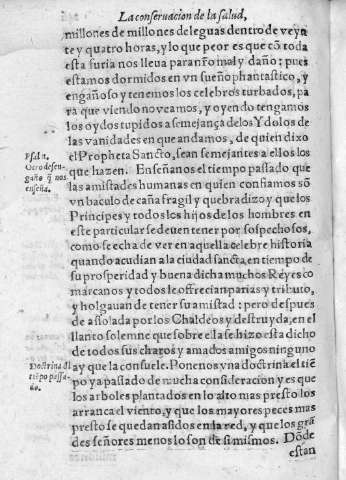 La conseruacion de la salud,
millones de millones de leguas dentro de veyn
te y quatro horas, y lo que peor es que cō toda
esta furia nos lleua para nr̃o mal y daño: pues
estamos dormidos en vn sueño phantastico, y
engañoso y tenemos los celebros turbados, pa
ra que viendo no veamos, y oyendo tengamos
los oydos tupidos a semejança de los Ydolos de
las vanidades en que andamos, de quien dixo
el Propheta Sancto, sean semejantes a ellos los
que hazen. Enseñanos el tiempo passado que
las amistades humanas en quien confiamos sō
vn baculo de caña fragil y quebradizo y que los
Principes y todos los hijos de los hombres en
este particular se deuen tener por sospechosos,
como se echa de ver en aquella celebre historia
quando acudian a la ciudad sancta, en tiempo de
su prosperidad y buena dicha muchos Reyes co
marcanos y todos le offrecian parias y tributo,
y holgauan de tener su amistad: pero despues
de asolada por los Chaldeos y destruyda, en el
llanto solemne que sobre ella se hizo esta dicho
de todos sus charos y amados amigos ninguno
ay que la consuele. Ponenos vna doctrina el tiē
po ya passado de mucha consideracion y es que
los arboles plantados en lo alto mas presto los
arranca el viento, y que los mayores peces mas
presto se quedan asidos en la red, y que los grā
des señores menos lo son de si mismos. Dōde
estan
Otro desen-
gaño q̃ nos
enseña.
Doctrina dl
tiēpo passa-
do.